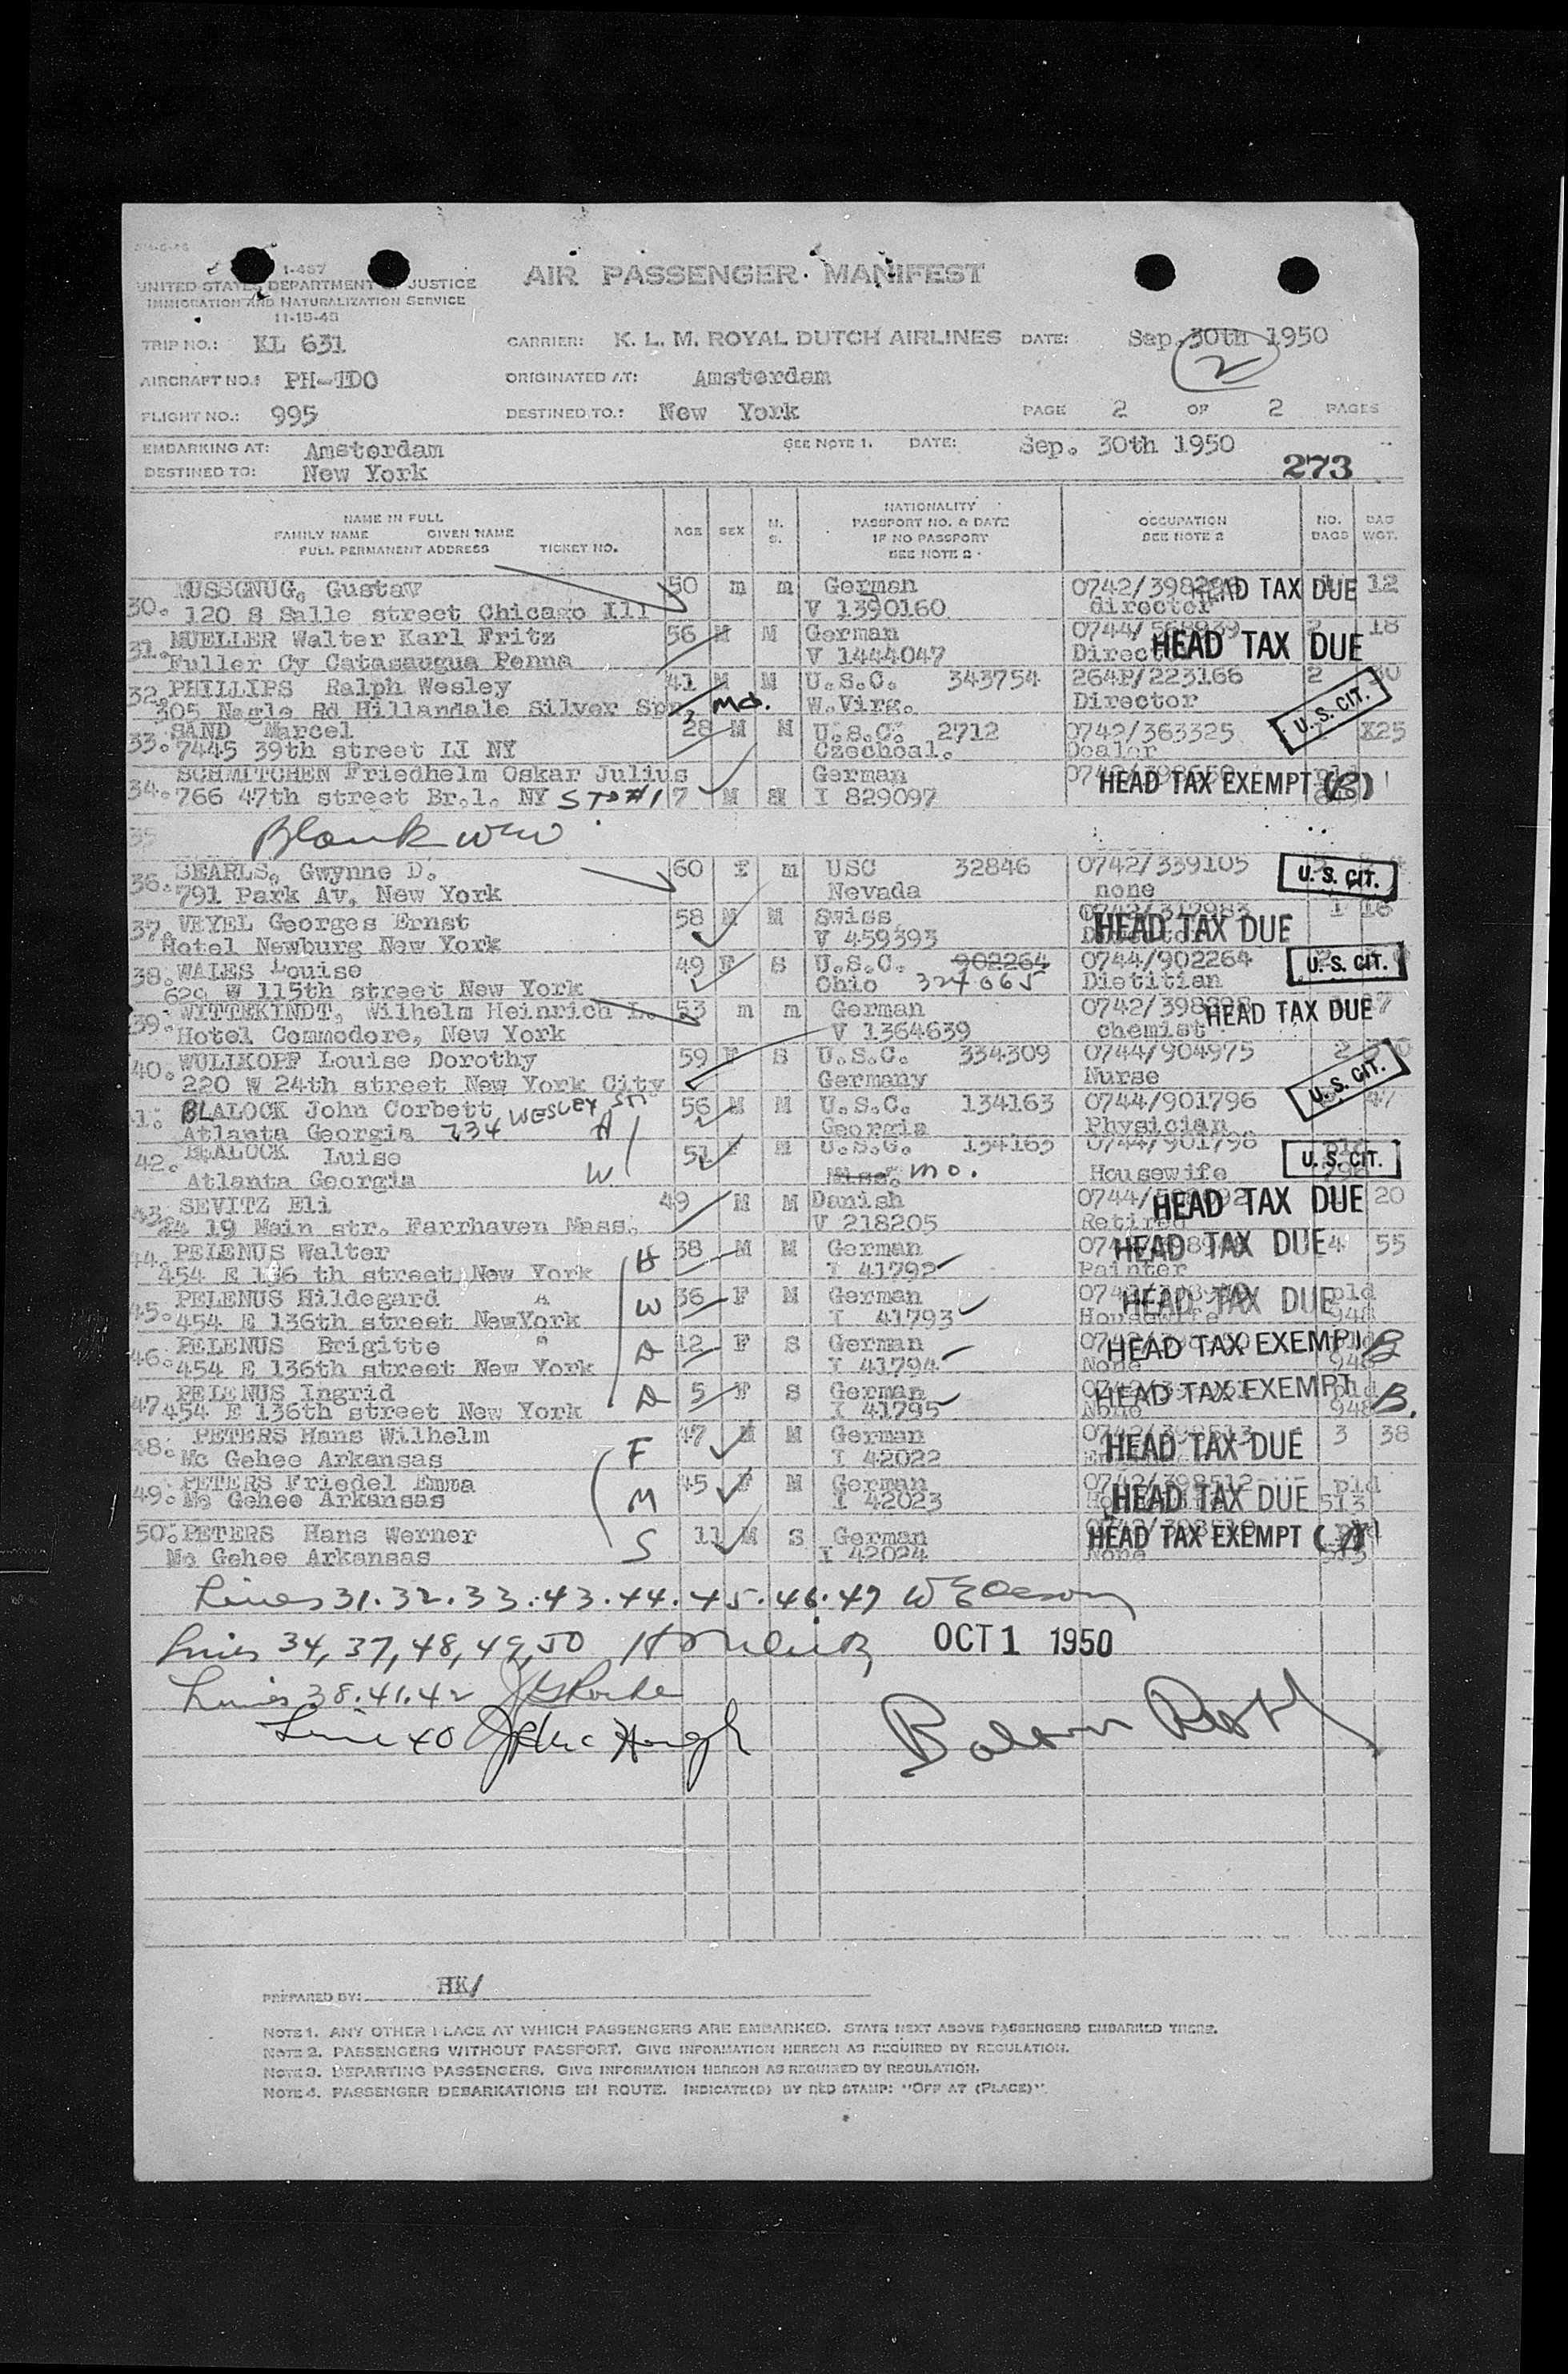 1-467
UNITED STATES DEPARTMENT OF JUSTICE
IMMIGRATION AND NATURALIZATION SERVICE
11-15-45
AIR PASSENGER MANIFEST
TRIP NO.: KL 631 CARRIER: K. L. M. ROYAL DUTCH AIRLINES DATE: Sep. 30th 1950
2
AIRCRAFT NO.: PH-TDO ORIGINATED AT: Amsterdam
FLIGHT NO.: 995 DESTINED TO.: New York PAGE 2 OF 2 PAGES
EMBARKING AT: Amsterdam SEE NOTE 1. DATE: Sep. 30th 1950
DESTINED TO: New York 273
NAME IN FULL
FAMILY NAME GIVEN NAME
FULL PERMANENT ADDRESS TICKET NO.
AGE SEX M. S.
NATIONALITY
PASSPORT NO. & DATE
IF NO PASSPORT
SEE NOTE 2
OCCUPATION
SEE NOTE 2
NO. BAGS
BAG WGT.
30. MUSSGNUG, Gustav 50 m m German HEAD TAX DUE 12
120 S Salle street Chicago Ill V 1390160 director
31. MUELLER Walter Karl Fritz 56 M M German 0744/568939 2 18
Fuller Cy Catasauqua Penna V 1444047 HEAD TAX DUE
32. PHILLIPS Ralph Wesley 41 M M U.S.C. 343754 264P/223166 2
305 Nagle Rd Hillandale Silver Spr, Md. W.Virg. Director U. S. CIT.
33. SAND Marcel 28 M M U.S.C. 2712 0742/363325 X25
7445 39th street LI NY Czechosl. Dealer
34. SCHMITCHEN Friedhelm Oskar Julius German
766 47th street Br.l. NY 17 M I 829097 HEAD TAX EXEMPT (B)
35 Blank
36. SEARLS, Gwynne D. 60 F m USC 32846 0742/339105 U. S. CIT.
791 Park Av, New York Nevada none
37. VEYEL Georges Ernst 58 M M Swiss 1 16
Hotel Newburg New York V 459393 HEAD TAX DUE
38. WALES Louise 49 F S U.S.C. 902264 0744/902264 U. S. CIT.
620 W 115th street New York Ohio 324665 Dietitian
39. WITTEKINDT, Wilhelm Heinrich L. 53 m m German HEAD TAX DUE
Hotel Commodore, New York V 1364639 chemist
40. WULIKOPF Louise Dorothy 59 F S U.S.C. 334309 0744/904975 2
220 W 24th street New York City Germany Nurse U. S. CIT.
41. BLALOCK John Corbett 56 M M U.S.C. 134163 0744/901796 47
Atlanta Georgia 734 WESLEY H Georgia Physician
42. BLALOCK Luise 51 F M U.S.C. 134163 0744/901798 pld
Atlanta Georgia W Miss. Mo. Housewife U. S. CIT.
43. SEVITZ Eli 49 M M Danish HEAD TAX DUE 20
19 Main str. Farrhaven Mass. V 218205 Retired
44. PELENUS Walter H 38 M M German HEAD TAX DUE 4 55
454 E 136 th street New York I 41792 Painter
45. PELENUS Hildegard W 36 F M German HEAD TAX DUE pld
454 E 136th street NewYork I 41793 Housewife 948
46. PELENUS Brigitte D 12 F S German HEAD TAX EXEMPT B
454 E 136th street New York I 41794 None 948
47 PELENUS Ingrid D 5 F S German HEAD TAX EXEMPT pld B.
454 E 136th street New York I 41795 None 948
48. PETERS Hans Wilhelm F 47 M M German HEAD TAX DUE 3 38
Mc Gehee Arkansas I 42022
49. PETERS Friedel Emma M 45 F M German 0742/398512 pld
Mc Gehee Arkansas I 42023 HEAD TAX DUE 513
50. PETERS Hans Werner S 11 M S German HEAD TAX EXEMPT
Mc Gehee Arkansas I 42024 None 513
Lines 31.32.33.43.44.45.46.47
Lines 34, 37, 48, 49, 50 OCT 1 1950
Lines 38.41.42
Line 40
PREPARED BY: HK/
NOTE 1. ANY OTHER PLACE AT WHICH PASSENGERS ARE EMBARKED. STATE NEXT ABOVE PASSENGERS EMBARKED THERE.
NOTE 2. PASSENGERS WITHOUT PASSPORT. GIVE INFORMATION HEREON AS REQUIRED BY REGULATION.
NOTE 3. DEPARTING PASSENGERS. GIVE INFORMATION HEREON AS REQUIRED BY REGULATION.
NOTE 4. PASSENGER DEBARKATIONS EN ROUTE. INDICATE(D) BY RED STAMP: "OFF AT (PLACE)".